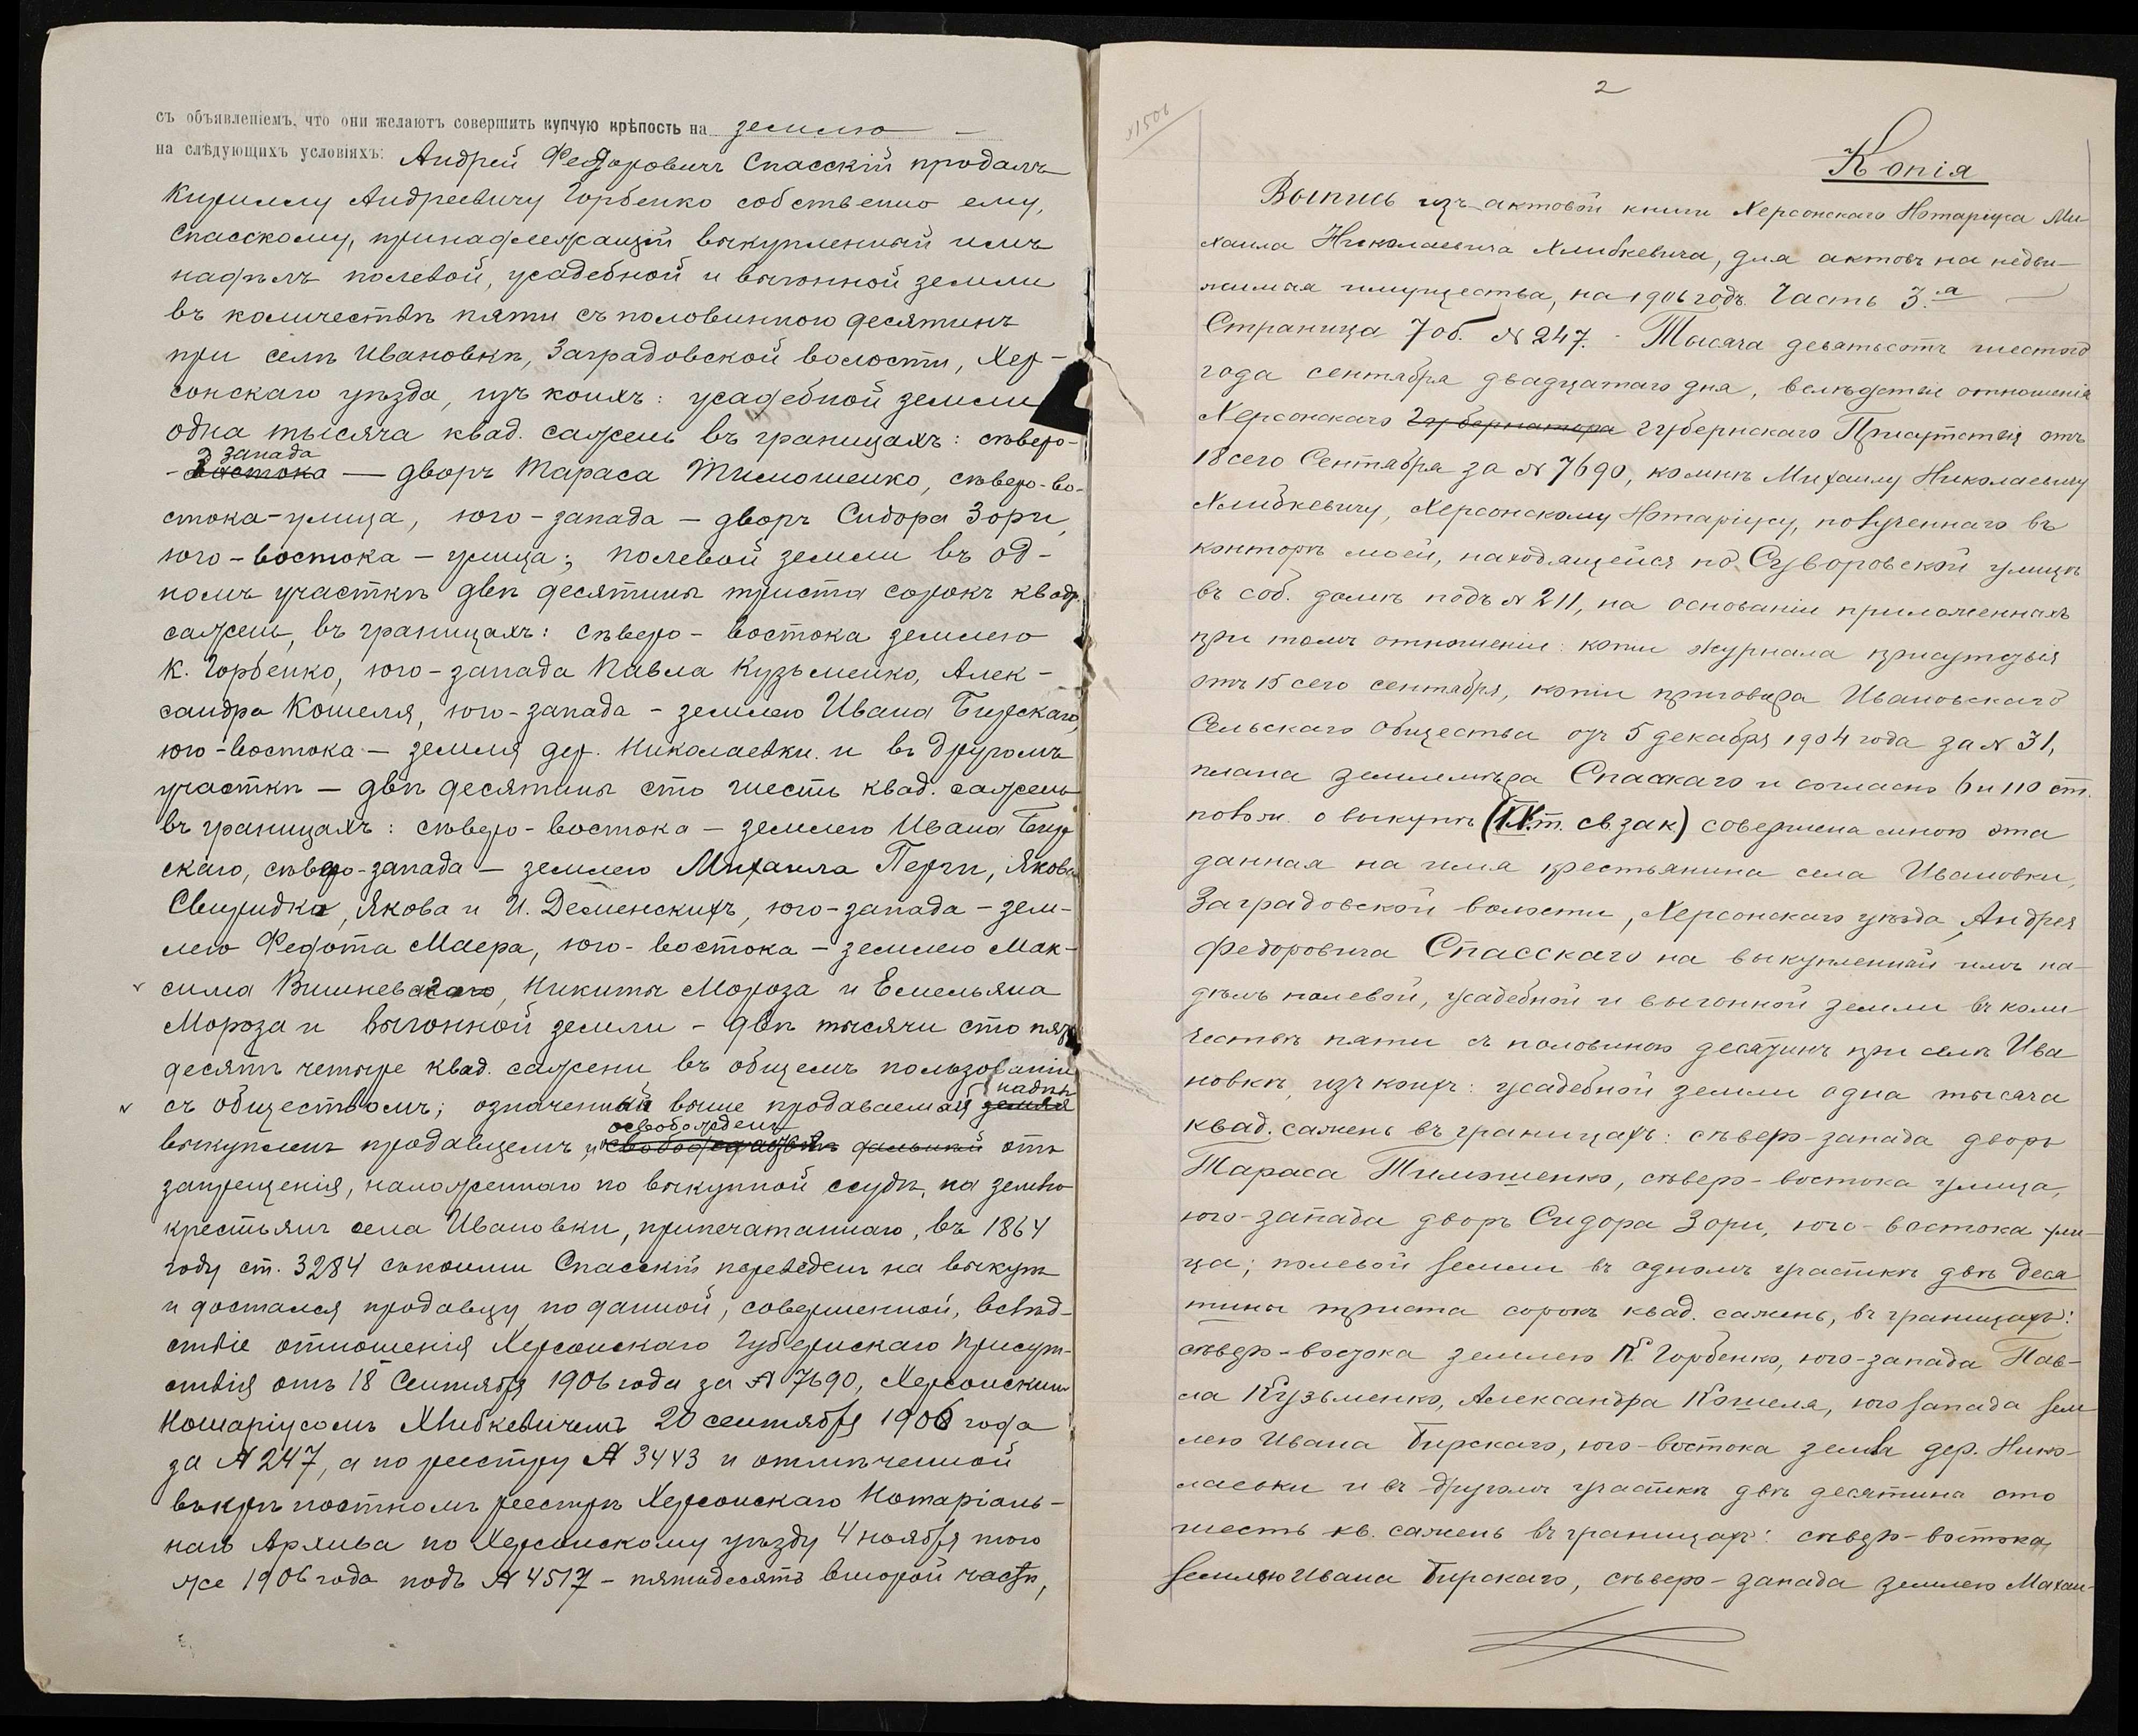 съ объявленіемъ, что они желаютъ совершить купчую крѣпость на землю —
на слѣдующихъ условіяхъ: Андрей Федоровичъ Спасскій продалъ
Кириллу Андреевичу Горбенко собственно ему,
Спасскому, принадлежащій выкупленный имъ
надѣлъ полевой, усадебной и выгонной земли
въ количествѣ пяти съ половиною десятинъ
при селѣ Ивановкѣ, Заградовской волости, Хер-
сонскаго уѣзда, изъ коихъ: усадебной земли
одна тысяча квад. сажень въ границахъ: сѣверо-
запада
- востока — дворъ Тараса Тимошенко, сѣверо-во-
стока - улица, юго-запада — дворъ Сидора Зори,
юго-востока — улица; полевой земли въ од-
номъ участкѣ двѣ десятины триста сорокъ квадр.
сажень, въ границахъ: сѣверо-востока землею
К. Горбенко, юго-запада Павла Кузьменко, Алек-
сандра Кошеля, юго-запада - землею Ивана Бирскаго,
юго-востока — земля дер. Николаевки и въ другомъ
участкѣ — двѣ десятины сто шесть квад. сажень
въ границахъ: сѣверо-востока — землею Ивана Бир
скаго, сѣверо-запада — землею Михаила Перги, Якова
Свиридка, Якова и И. Деменскихъ, юго-запада - зем-
лею Федота Маера, юго-востока — землею Мак-
сима Вишневскаго, Никиты Мороза и Емельяна
Мороза и выгонной земли - двѣ тысячи сто пять
десятъ четыре квад. сажени въ общемъ пользованіи
надѣлъ
съ обществомъ; означенный выше продаваемый земля
освобожденъ
выкупленъ продавцемъ и отъ
запрещенія, наложеннаго по выкупной ссудѣ, на землю
крестьянъ села Ивановки, припечатаннаго, въ 1864
году ст. 3284 съ коими Спасскій переведенъ на выкупъ
и достался продавцу по данной, совершенной, вслѣд-
ствіе отношенія Херсонскаго Губернскаго Присут-
ствія отъ 18 Сентября 1906 года за № 7690, Херсонскимъ
Нотаріусомъ Хлибкевичемъ 20 сентября 1906 года
за № 247, а по реестру № 3443 и отмѣченной
въ крѣпостномъ реестрѣ Херсонскаго Нотаріаль-
наго Архива по Херсонскому уѣзду 4 ноября того
же 1906 года подъ № 4517 - пятьдесятъ второй части,
2
Копія
Выпись изъ актовой книги Херсонскаго Нотаріуса Ми-
хаила Николаевича Хлибкевича, для актовъ на недви-
жимыя имущества, на 1906 годъ. Часть 3.я
Страница 7 об. № 247. Тысяча девятьсотъ шестого
года сентября двадцатаго дня, вслѣдствіе отношенія
Херсонскаго Губернатора Губернскаго Присутствія отъ
18 сего Сентября за № 7690, ко мнѣ Михаилу Николаевичу
Хлибкевичу, Херсонскому Нотаріусу, полученнаго въ
конторѣ моей, находящейся по Суворовской улицѣ
въ соб. домѣ подъ № 211, на основаніи приложенныхъ
при томъ отношеніи: копіи журнала присутствія
отъ 15 сего сентября, копіи приговора Ивановскаго
Сельскаго Общества отъ 5 декабря 1904 года за № 31,
плана землемѣра Спасскаго и согласно 6 и 110 ст.
полож. о выкупѣ (IX т. св. зак) совершена мною эта
данная на имя крестьянина села Ивановки,
Заградовской волости, Херсонскаго уѣзда, Андрея
Федоровича Спасскаго на выкупленный имъ на-
дѣлъ полевой, усадебной и выгонной земли въ коли
чествѣ пяти съ половиною десятинъ при селѣ Ива
новкѣ, изъ коихъ: усадебной земли одна тысяча
квад. сажень въ границахъ: сѣверо-запада дворъ
Тараса Тимошенко, сѣверо-востока улица,
юго-запада дворъ Сидора Зори, юго-востока ули-
ца; полевой земли въ одномъ участкѣ двѣ деся
тины триста сорокъ квад. сажень, въ границахъ:
сѣверо-востока землею К. Горбенко, юго-запада Пав-
ла Кузьменко, Александра Кошеля, юго запада зем
лею Ивана Бирскаго, юго-востока земля дер. Нико-
лаевки и въ другомъ участкѣ двѣ десятины сто
шесть кв. сажень въ границахъ: сѣверо-востока
землею Ивана Бирскаго, сѣверо-запада землею Михаи-